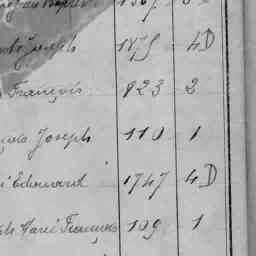 Joseph 1875 4D
François 823 2
Joseph 110 1
Edouard 1747 4D
Marie François 109 1